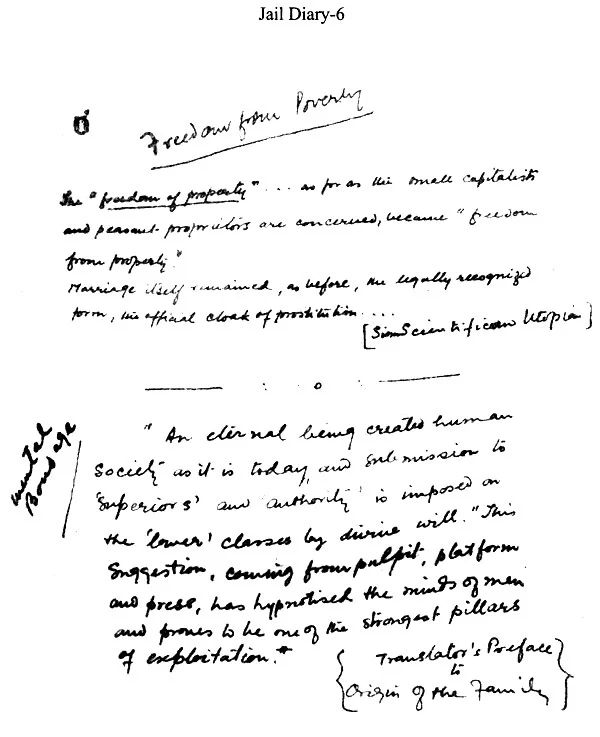 Jail Diary-6
Freedom from Poverty
The "freedom of property" ... as far as the small capitalists
and peasant proprietors are concerned, became "freedom
from property."
Marriage itself remained, as before, the legally recognized
form, the official cloak of prostitution ....
Utopian]
mental
Bondage
"An eternal being created human
Society as it is today, and submission to
'superiors' and 'authority' is imposed on
the 'lower' classes by divine will." This
Suggestion, coming from pulpit, platform
and press, has hypnotised the minds of men
and proves to be one of the strongest pillars
of exploitation."
{Translator's Preface
to
Origin of the Family}